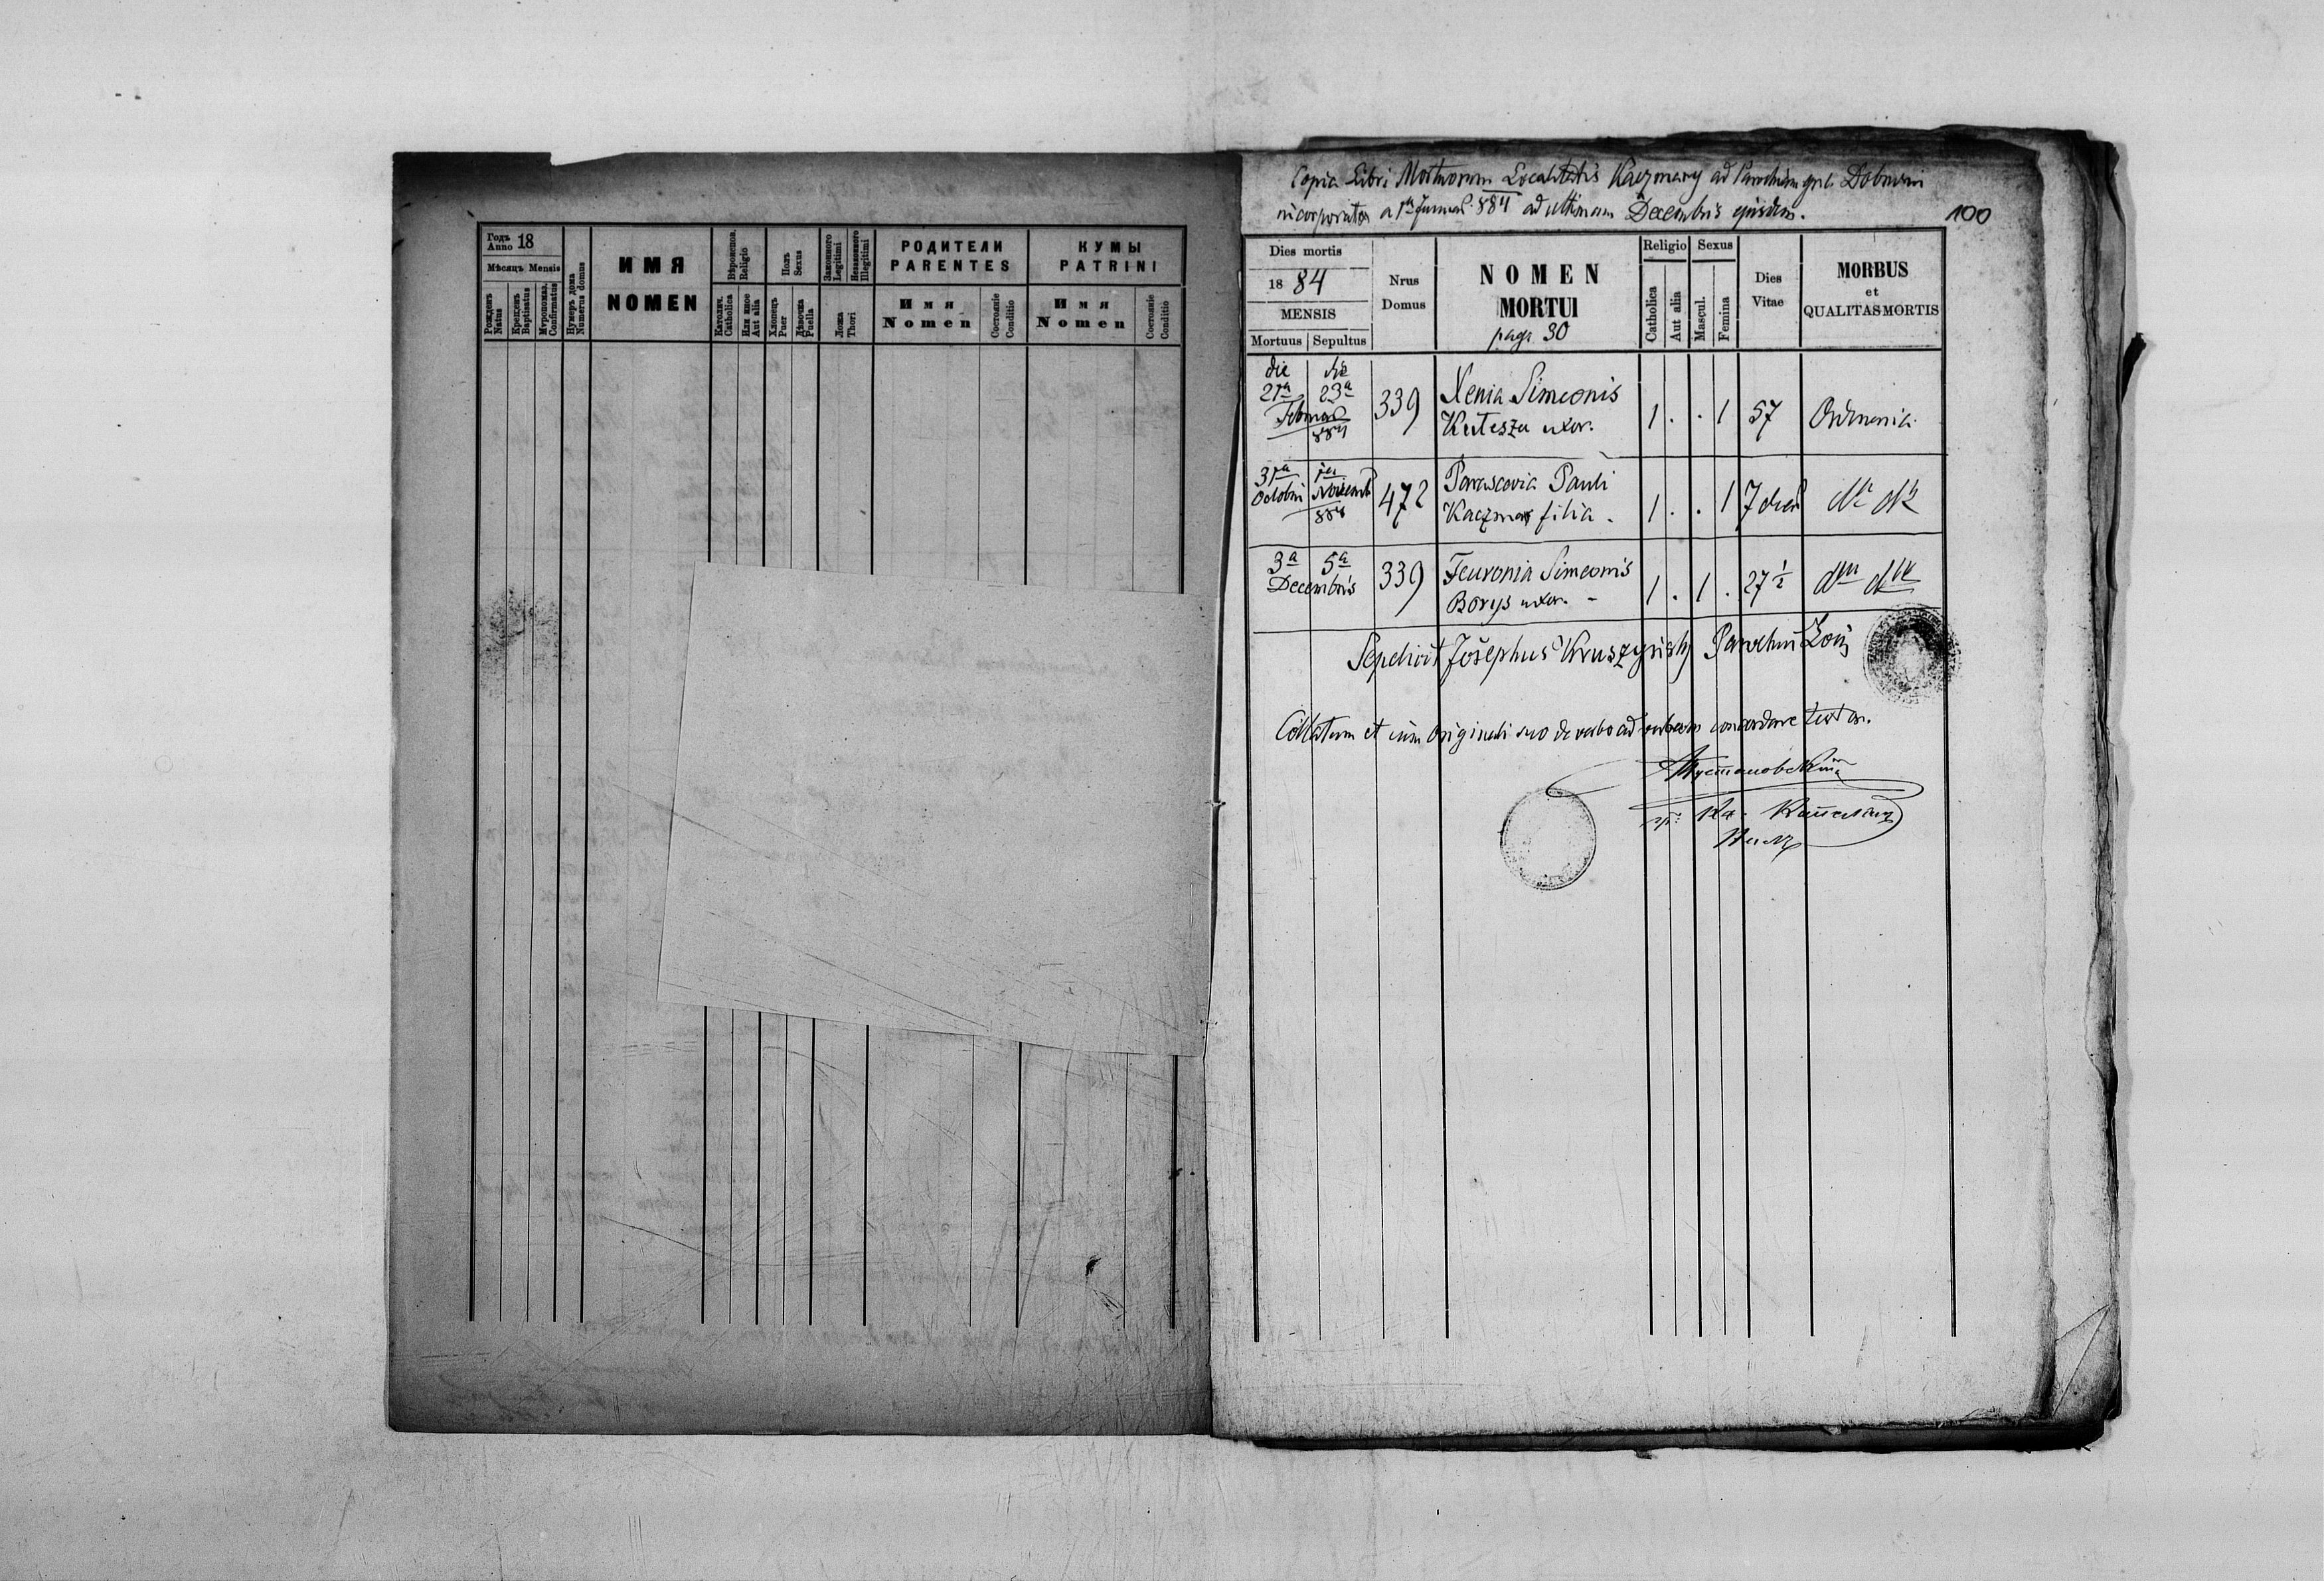 Годъ
Anno 18
Мѣсяць Mensis
Рожденъ
Natus
Крещенъ
Baptisatus
Мѵропомаз.
Confirmatus
Нумеръ дома
Numerus domus
ИМЯ
NOMEN
Вѣроиспов.
Religio
Католич.
Catholica
Или иное
Aut alia
Полъ
Sexus
Хлопець
Puer
Дѣвочка
Puella
Законного
Legitimi
Незаконного
Illegitimi
Ложа
Thori
РОДИТЕЛИ
PARENTES
Имя
Nomen
Состояніе
Conditio
КУМЫ
PATRINI
Имя
Nomen
Состояніе
Conditio
Copia Libri Mortuorum Localitatis Kaczmary ad Parochiam gr. c.
incorporatae a 1a Januar. 884 ad ultimam Decembris ejusdem.
100
Dies mortis
1884
MENSIS
Mortuus Sepultus
Nrus
Domus
NOMEN
MORTUI
paga 30
Religio
Catholica
Aut alia
Sexus
Mascul.
Femina
Dies
Vitae
MORBUS
et
QUALITAS MORTIS
die die
21a 23a 339 Xenia Simeonis
Februar 884 Kutesza uxor. 1 . . 1 57
31a 1a 472 Parascevia Pauli
Octobris Novemb 884 Kaczmar filia. 1 . . 1 7
3a 5a 339 Feuronia Simeonis
Decembris Borys uxor. - 1 . 1 . 27 1/2
Sepelivit Josephus Kruszynsky Parochus
Collatum et cum Originali suo de verbo ad verbum concordare testor.